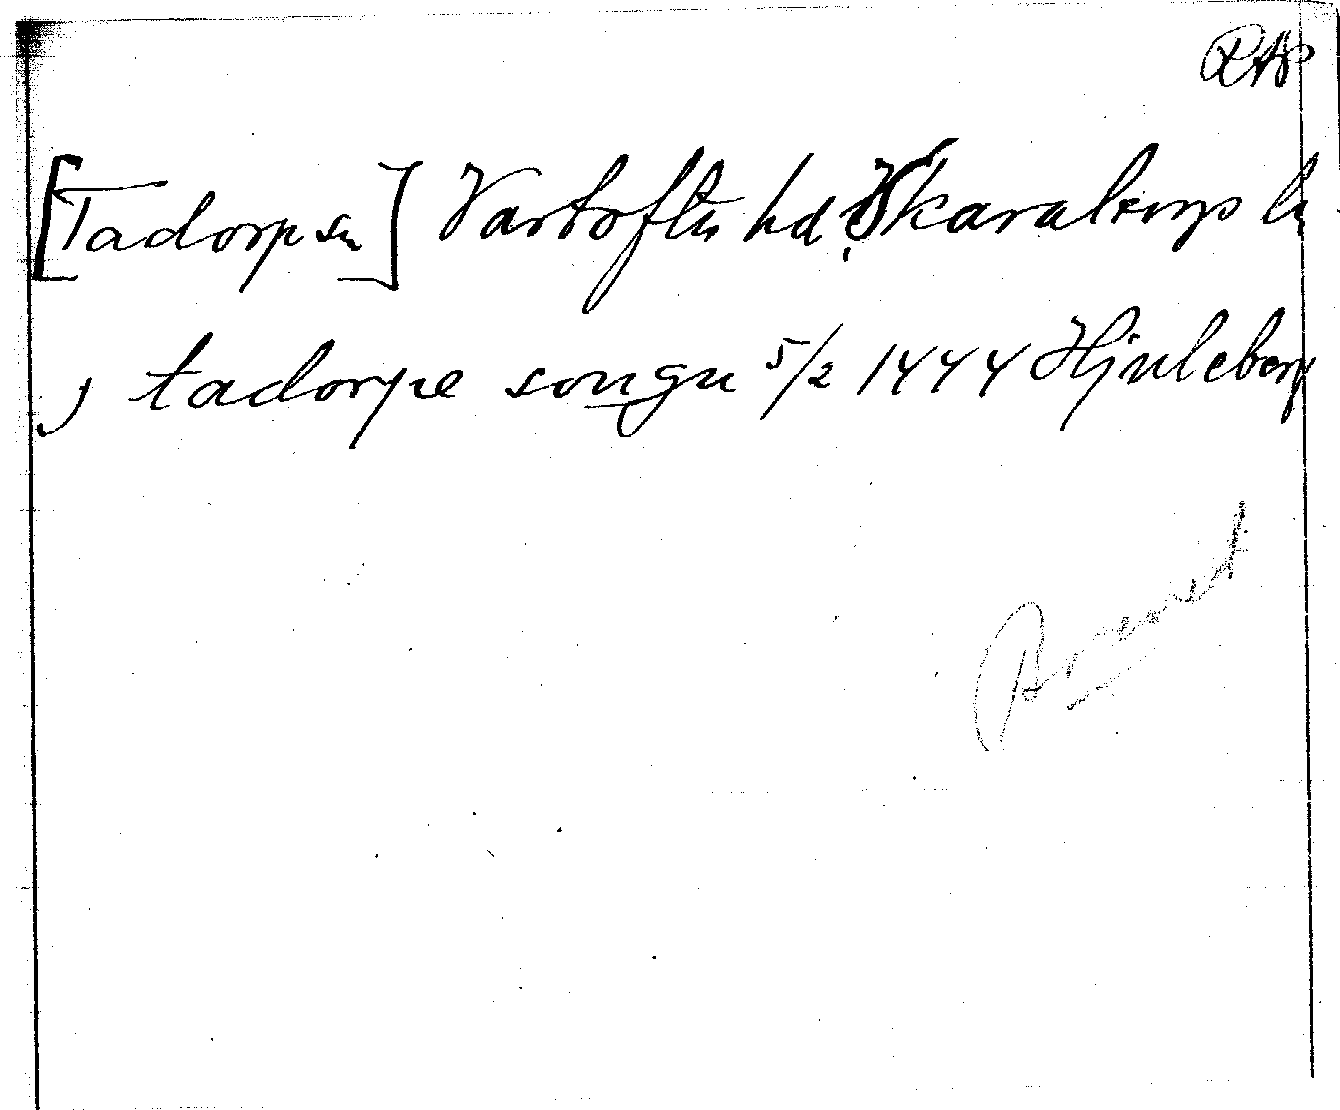 RAP
[Tadorp sn] Vartofta hd, Skaraborgs l
j tadorpe songn 5/2 1444 Hjuleberg